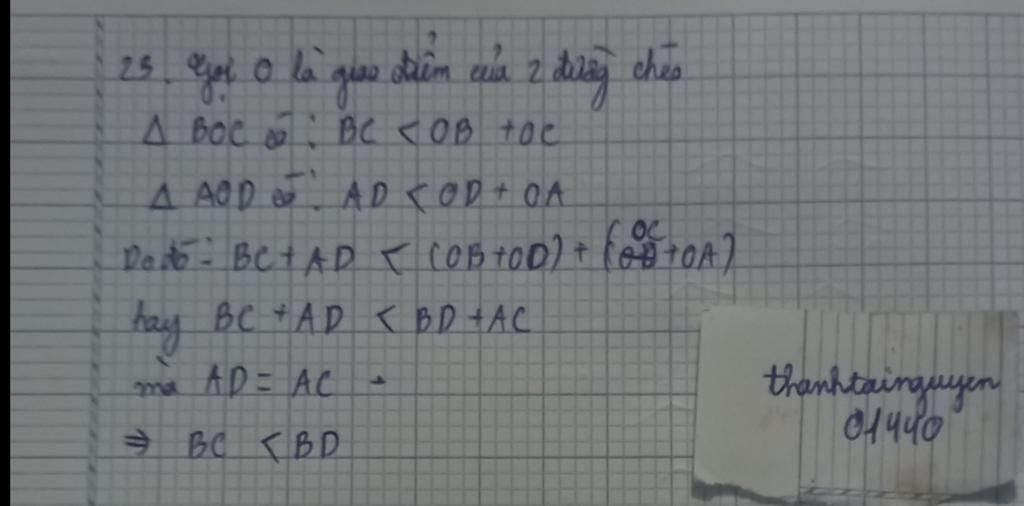 23. Gọi O là giao điểm của 2 đường chéo
Δ BOC có: BC < OB + OC
Δ AOD có: AD < OD + OA
Do đó: BC + AD < (OB + OD) + (OC + OA)
hay BC + AD < BD + AC
mà AD = AC
⇒ BC < BD
thanhtainguyen
01440